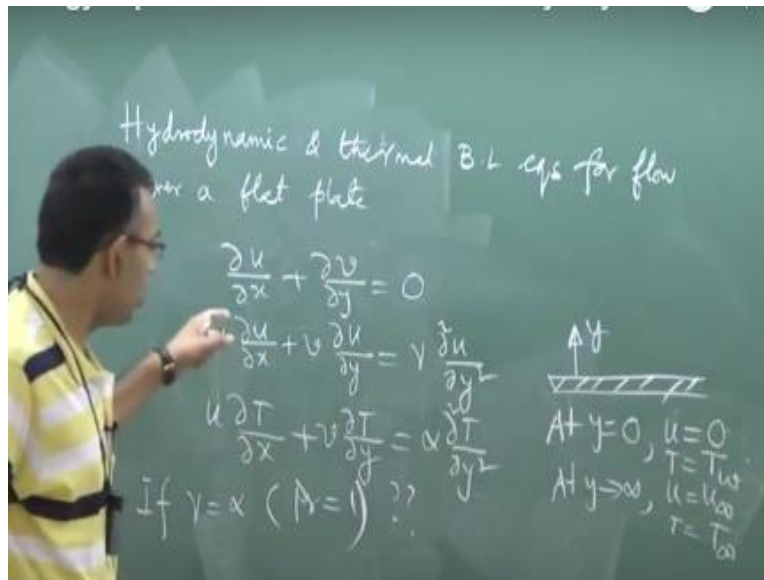 Hydrodynamic & thermal B.L eqs for flow
a flat plate
∂u/∂x + ∂v/∂y = 0
∂u/∂x + v ∂u/∂y = ν ∂²u/∂y²
u ∂T/∂x + v ∂T/∂y = α ∂²T/∂y²
If ν = α ( = 1) ??
y
At y=0, u=0
T=Tw
At y→∞, u=u∞
T=T∞